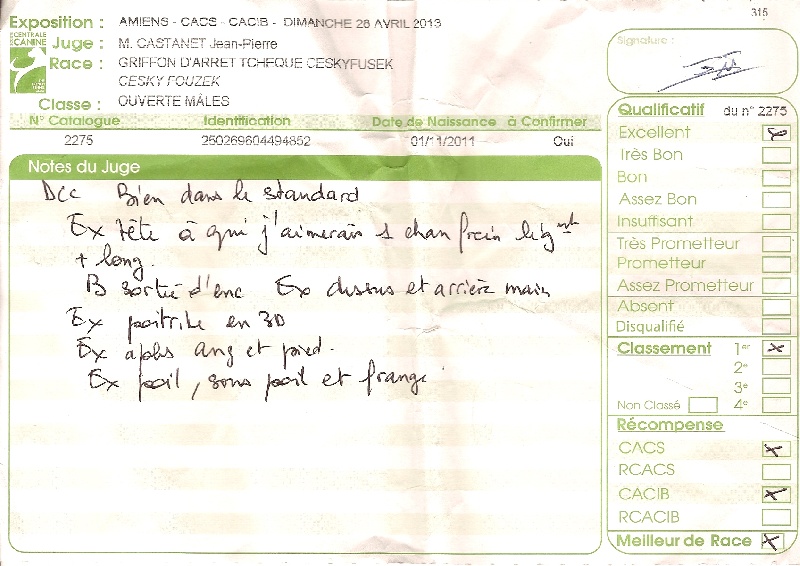 315
Exposition : AMIENS - CACS - CACIB - DIMANCHE 28 AVRIL 2013
CENTRALE CANINE
Juge : M. CASTANET Jean-Pierre
Race : GRIFFON D'ARRET TCHEQUE CESKYFUSEK
CESKY FOUZEK
Classe : OUVERTE MÂLES
N° Catalogue Identification Date de Naissance à Confirmer
2275 250269604494852 01/11/2011 Oui
Notes du Juge
Bien dans le standard
Ex tête à qui j'aimerais 1 chanfrein
+ long.
B sortie d'enc Ex dessus et arrière main
Ex poitrine en 3D
Ex aplbs ang et pied.
Ex poil, sous poil et frange
Signature :
Qualificatif du n° 2275
Excellent
Très Bon
Bon
Assez Bon
Insuffisant
Très Prometteur
Prometteur
Assez Prometteur
Absent
Disqualifié
Classement 1er x
2e
3e
Non Classé 4e
Récompense
CACS x
RCACS
CACIB x
RCACIB
Meilleur de Race x